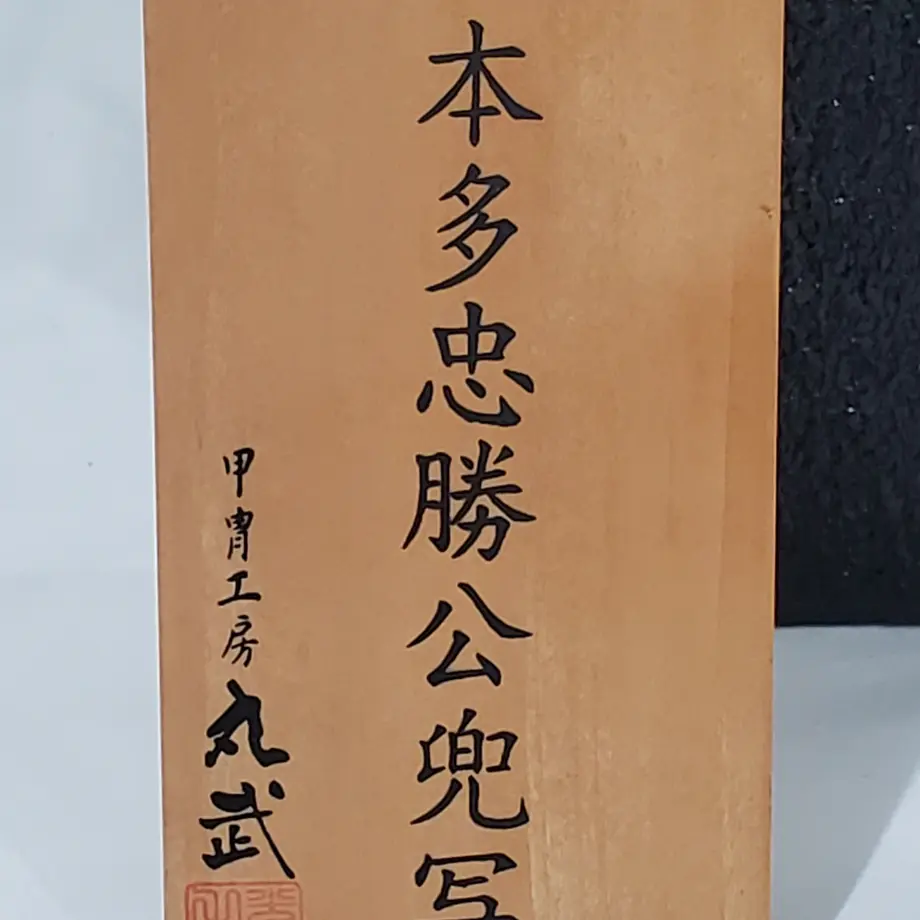 本多忠勝公兜写
甲冑工房丸武